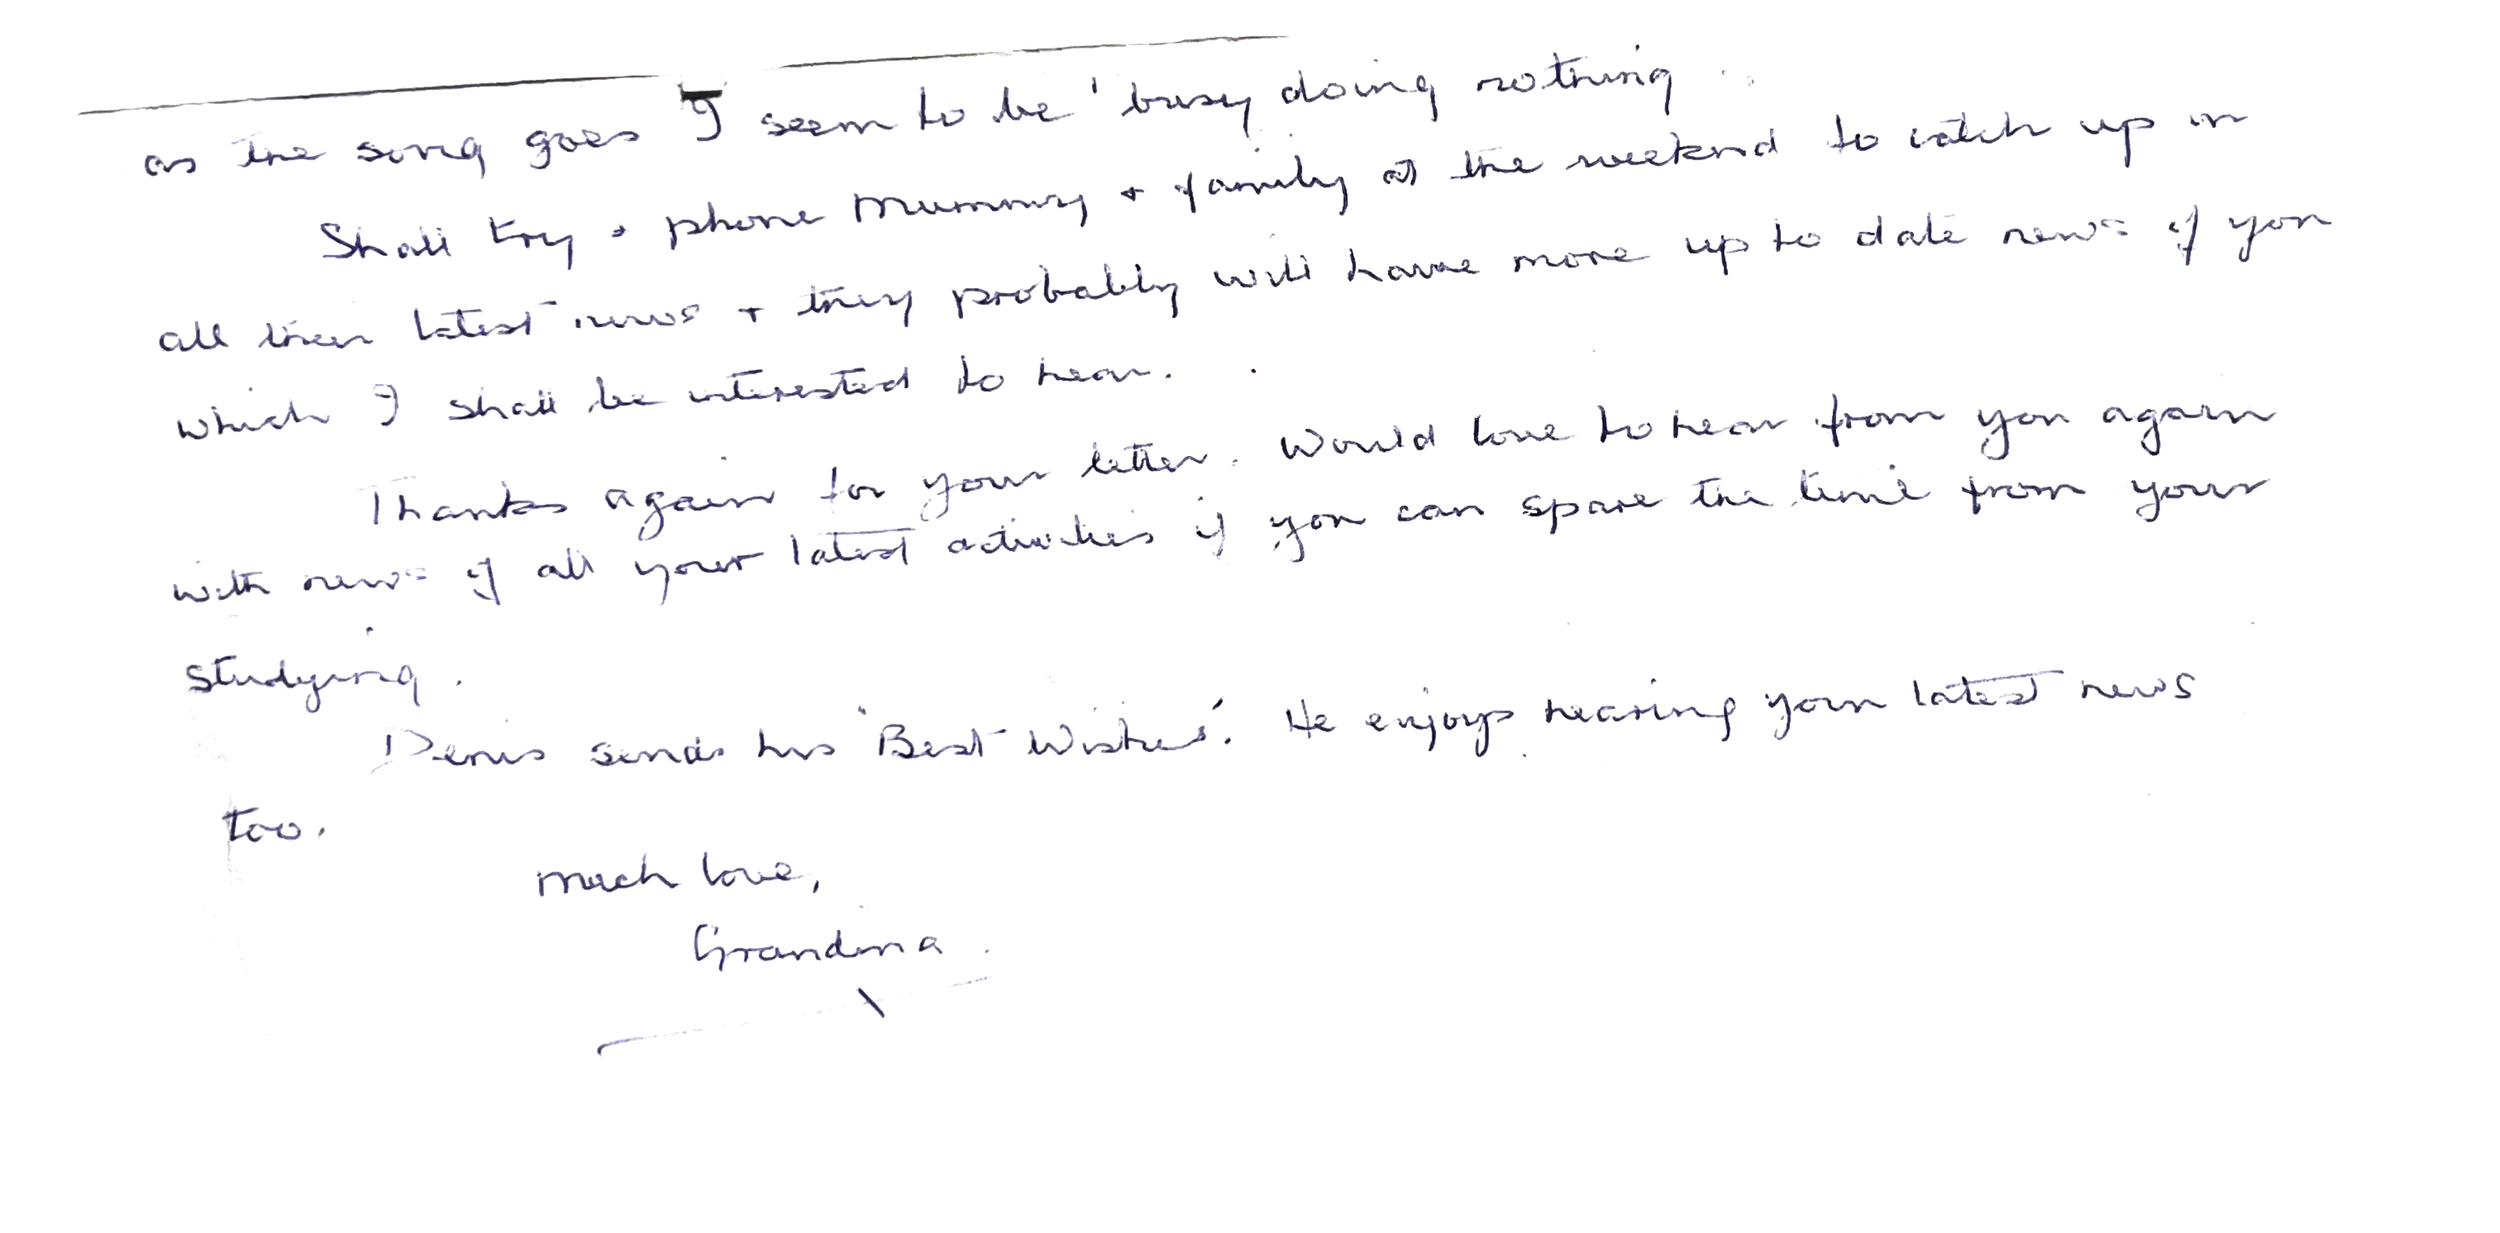 as the song goes I seem to be 'busy doing nothing'.
Shall try & phone Mummy & family at the weekend to catch up on
all their latest news & they probably will have more up to date news of you
which I shall be interested to hear.
Thanks again for your letter. Would love to hear from you again
with news of all your latest activities if you can spare the time from your
studying.
Denis sends his 'Best Wishes'. He enjoys hearing your latest news
too.
Much love,
Grandma.